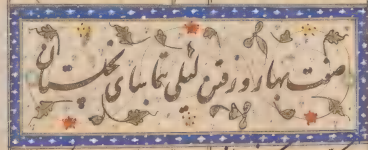 صفت بهار و رفتن لیلی بتماشای نخلستان